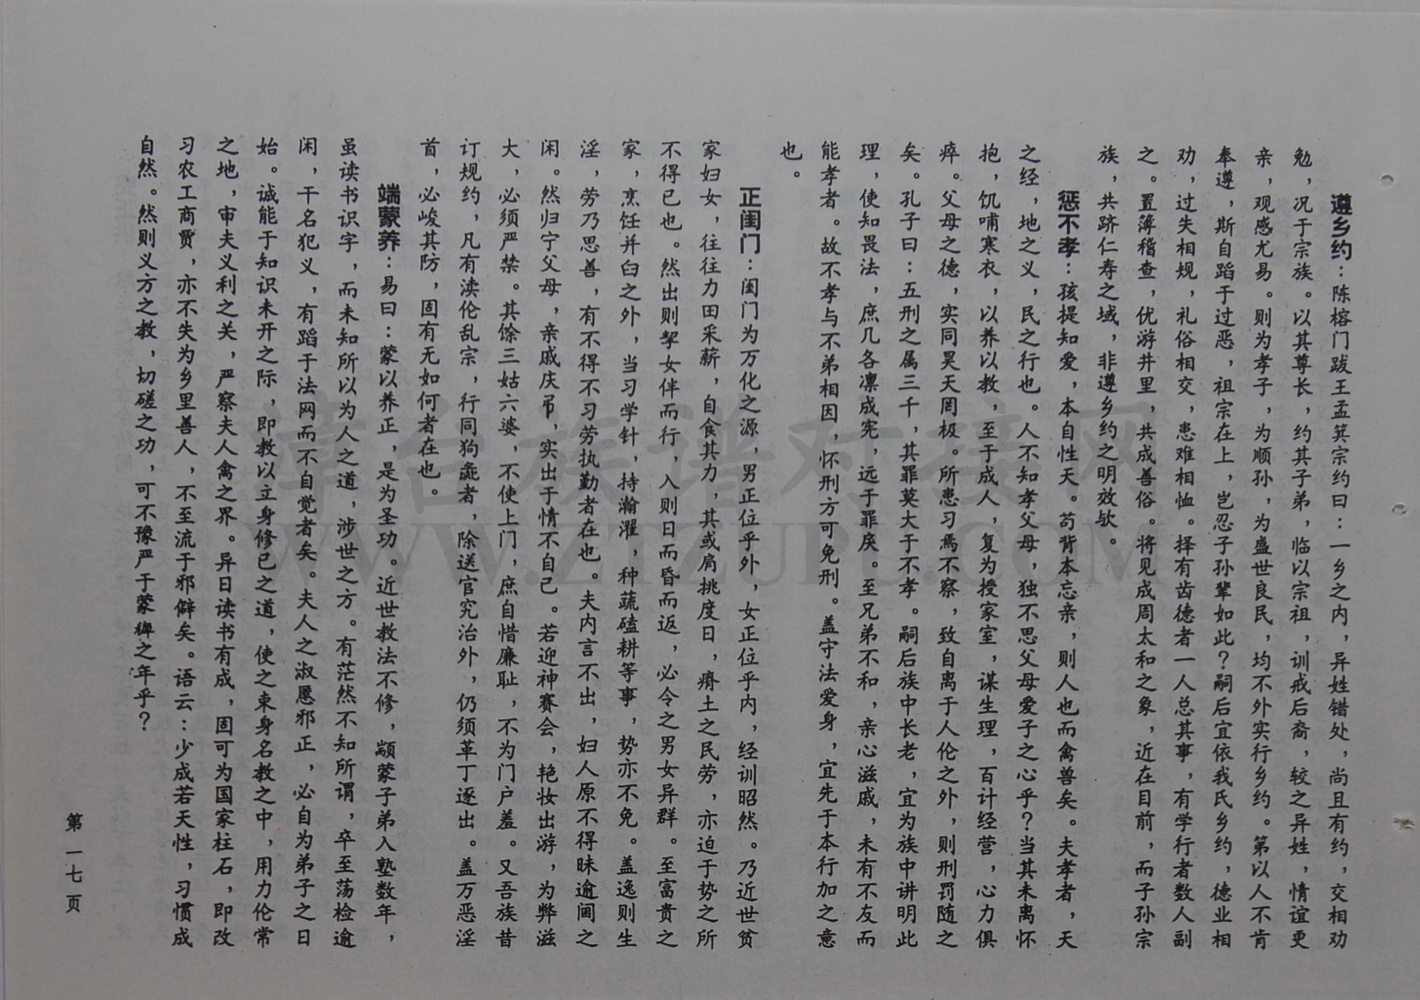 遵乡约：陈榕门跋王孟箕宗约曰：一乡之内，异姓错处，尚且有约，交相劝
勉，况于宗族。以其尊长，约其子弟，临以宗祖，训戒后裔，较之异姓，情谊更
亲，观感尤易。则为孝子，为顺孙，为盛世良民，均不外实行乡约。第以人不肯
奉遵，斯自蹈于过恶，祖宗在上，岂忍子孙辈如此？嗣后宜依我氏乡约，德业相
劝，过失相规，礼俗相交，患难相恤。择有齿德者一人总其事，有学行者数人副
之。置簿稽查，优游井里，共成善俗。将见成周太和之象，近在目前，而子孙宗
族，共跻仁寿之域，非遵乡约之明效欤。
惩不孝：孩提知爱，本自性天。苟背本忘亲，则人也而禽兽矣。夫孝者，天
之经，地之义，民之行也。人不知孝父母，独不思父母爱子之心乎？当其未离怀
抱，饥哺寒衣，以养以教，至于成人，复为授家室，谋生理，百计经营，心力俱
瘁。父母之德，实同昊天罔极。所患习焉不察，致自离于人伦之外，则刑罚随之
矣。孔子曰：五刑之属三千，其罪莫大于不孝。嗣后族中长老，宜为族中讲明此
理，使知畏法，庶几各凛成宪，远于罪戾。至兄弟不和，亲心滋戚，未有不友而
能孝者。故不孝与不弟相因，怀刑方可免刑。盖守法爱身，宜先于本行加之意
也。
正闺门：闺门为万化之源，男正位乎外，女正位乎内，经训昭然。乃近世贫
家妇女，往往力田采薪，自食其力，其或肩挑度日，瘠土之民劳，亦迫于势之所
不得已也。然出则挈女伴而行，入则日而昏而返，必令之男女异群。至富贵之
家，烹饪并臼之外，当习学针，持瀚濯，种蔬磕耕等事，势亦不免。盖逸则生
淫，劳乃思善，有不得不习劳执勤者在也。夫内言不出，妇人原不得昧逾阃之
闲。然归宁父母，亲戚庆吊，实出于情不自己。若迎神赛会，艳妆出游，为弊滋
大，必须严禁。其馀三姑六婆，不使上门，庶自惜廉耻，不为门户羞。又吾族昔
订规约，凡有渎伦乱宗，行同狗彘者，除送官究治外，仍须革丁逐出。盖万恶淫
首，必峻其防，固有无如何者在也。
端蒙养：易曰：蒙以养正，是为圣功。近世教法不修，颛蒙子弟入塾数年，
虽读书识字，而未知所以为人之道，涉世之方。有茫然不知所谓，卒至荡检逾
闲，干名犯义，有蹈于法网而不自觉者矣。夫人之淑慝邪正，必自为弟子之日
始。诚能于知识未开之际，即教以立身修己之道，使之束身名教之中，用力伦常
之地，审夫义利之关，严察夫人禽之界。异日读书有成，固可为国家柱石，即改
习农工商贾，亦不失为乡里善人，不至流于邪僻矣。语云：少成若天性，习惯成
自然。然则义方之教，切磋之功，可不豫严于蒙稺之年乎？
第一七页
WWW.ZTZUPU.COM